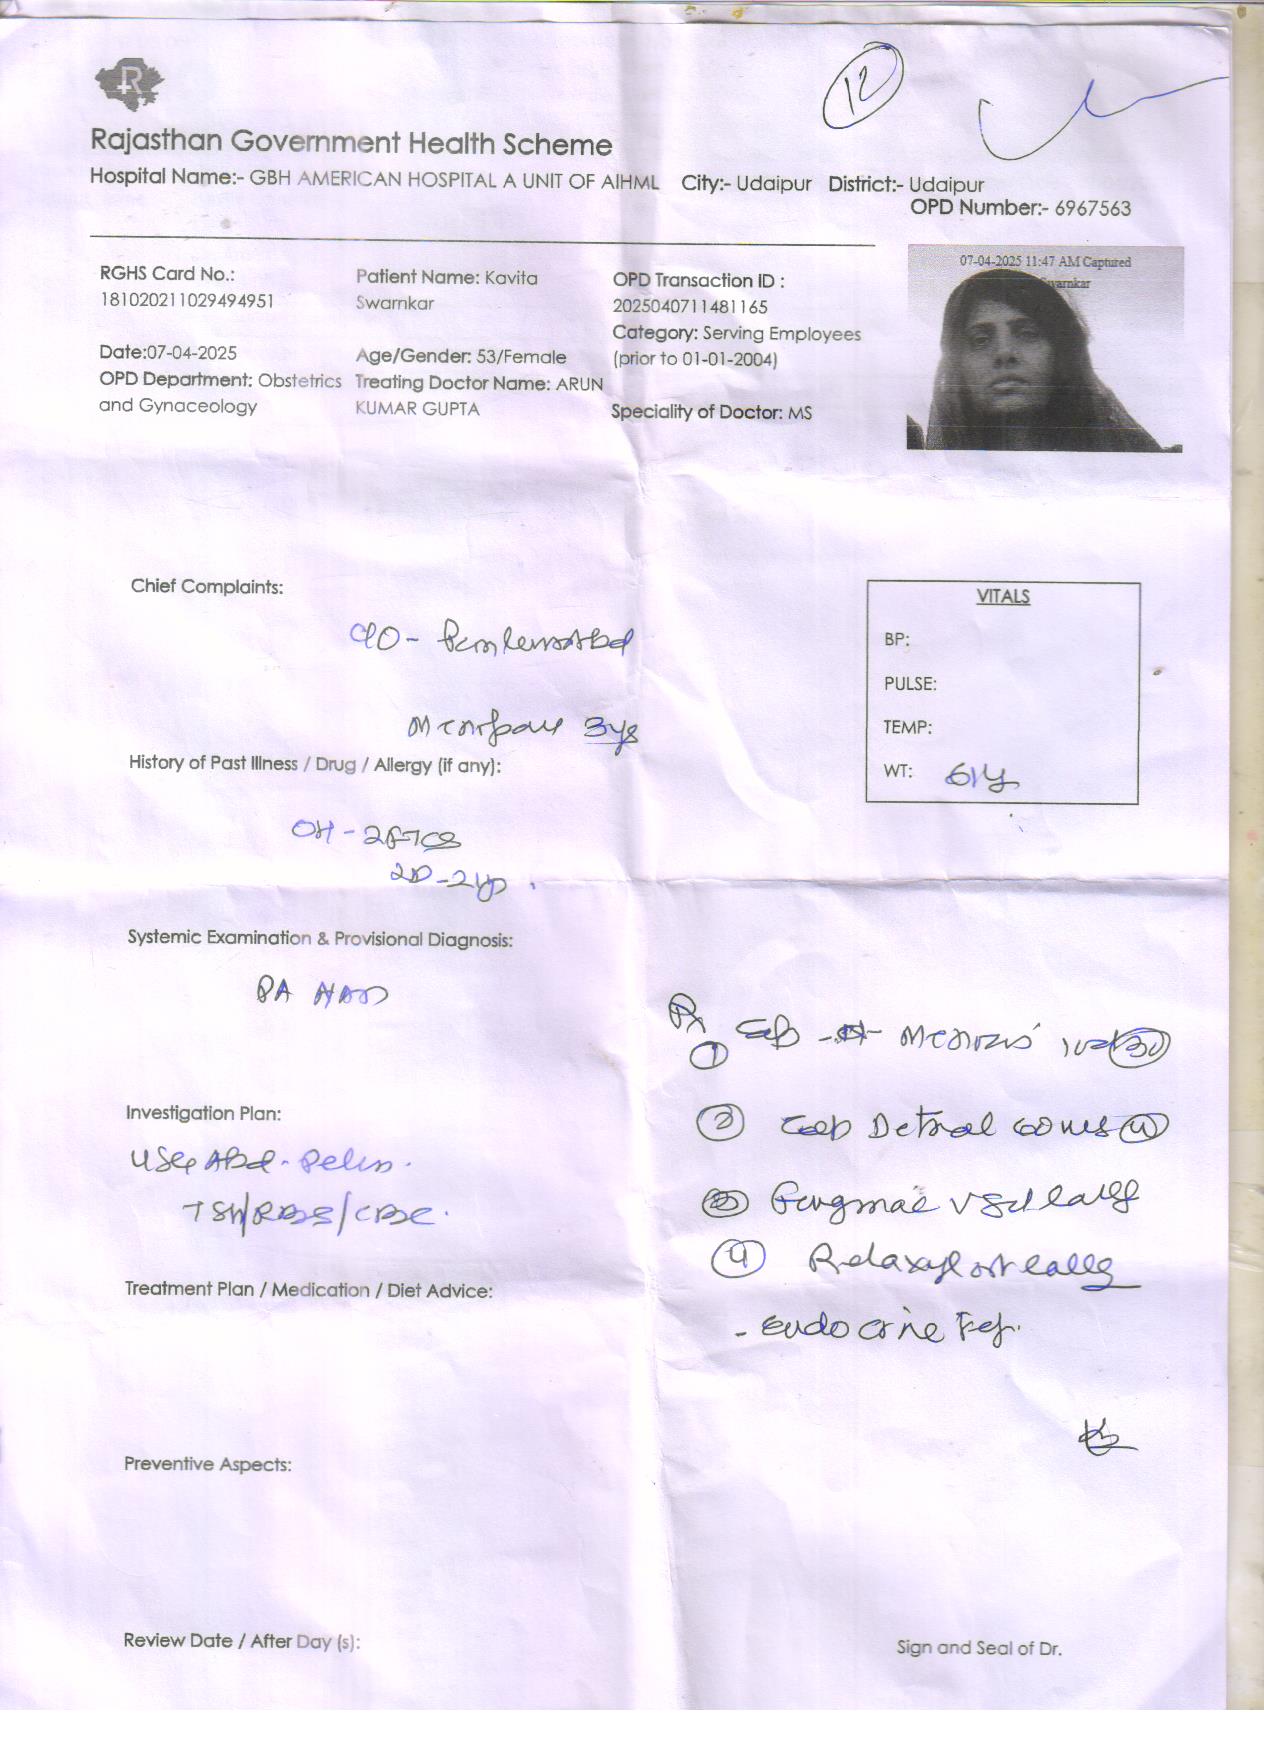 12
Rajasthan Government Health Scheme
Hospital Name:- GBH AMERICAN HOSPITAL A UNIT OF AIHML City:- Udaipur District:- Udaipur
OPD Number:- 6967563
07-04-2025 11:47 AM Captured
Swarnkar
RGHS Card No.:
181020211029494951
Patient Name: Kavita
Swarnkar
OPD Transaction ID :
2025040711481165
Category: Serving Employees
(prior to 01-01-2004)
Date:07-04-2025
Age/Gender: 53/Female
OPD Department: Obstetrics
and Gynaceology
Treating Doctor Name: ARUN
KUMAR GUPTA
Speciality of Doctor: MS
Chief Complaints:
C/O - Pain lower Abd
Menopause 3ys
VITALS
BP:
PULSE:
TEMP:
WT:
History of Past Illness / Drug / Allergy (if any):
OH - 2FTCS
Systemic Examination & Provisional Diagnosis:
PA NAD
Investigation Plan:
USG Abd - Pelvis.
TSH/RBS/CBC.
Treatment Plan / Medication / Diet Advice:
Rx
1
2
4
- Endocrine Ref.
Preventive Aspects:
Review Date / After Day (s):
Sign and Seal of Dr.